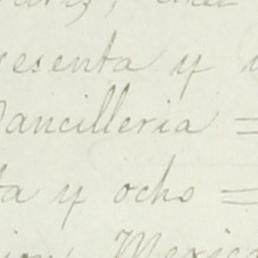 resenta y
ancilleria =
ta y ocho =
Mexico